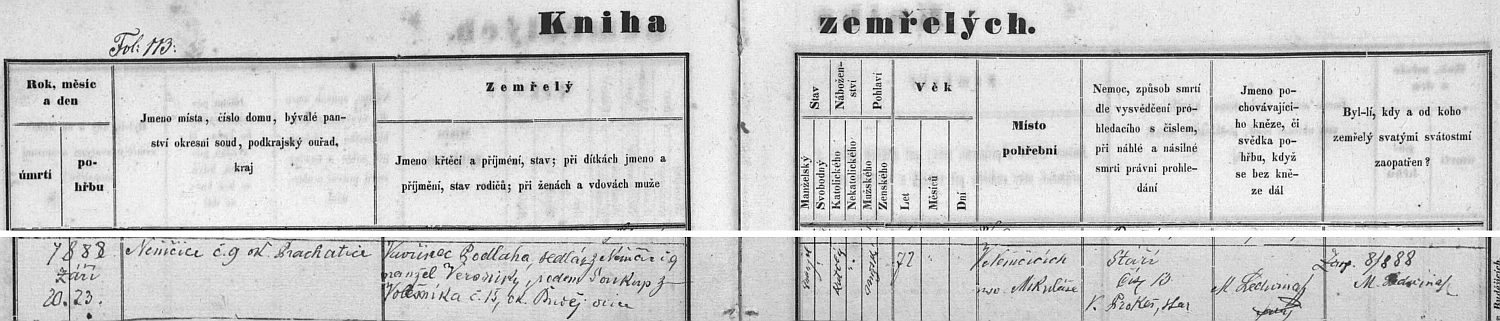 Kniha zemřelých.
Fol: 113:
Rok, měsíc
a den
úmrtí
po-
hřbu
Jmeno místa, číslo domu, bývalé pan-
ství okresní soud, podkrajský ouřad,
kraj
Zemřelý
Jmeno křtěcí a příjmení, stav; při dítkách jmeno a
příjmení, stav rodičů; při ženách a vdovách muže
Stav
Manželský
Svobodný
Nábožen-
ství
Katolického
Nekatolického
Pohlaví
Mužského
Ženského
Věk
Let
Měsíců
Dní
Místo
pohřební
Nemoc, způsob smrti
dle vysvědčení pro-
hledacího s číslem,
při náhlé a násilné
smrti právní prohle-
dání
Jmeno po-
chovávající-
ho kněze, či
svědka po-
hřbu, když
se bez kně-
ze dál
Byl-lí, kdy a od koho
zemřelý svatými svátostmi
zaopatřen?
1888
září
20. 23.
Němčice č. 9 ok. Prachatice
Vavřinec Podlaha, sedlák z Němčic č. 9
manžel Veroniky, rodem Soukup z
č. 15, ok.
72
sv. Mikuláše
Stáří
Čís. 13
V. Prokeš,
M.
Zaop. 8/8 88
M.
v Budějicích